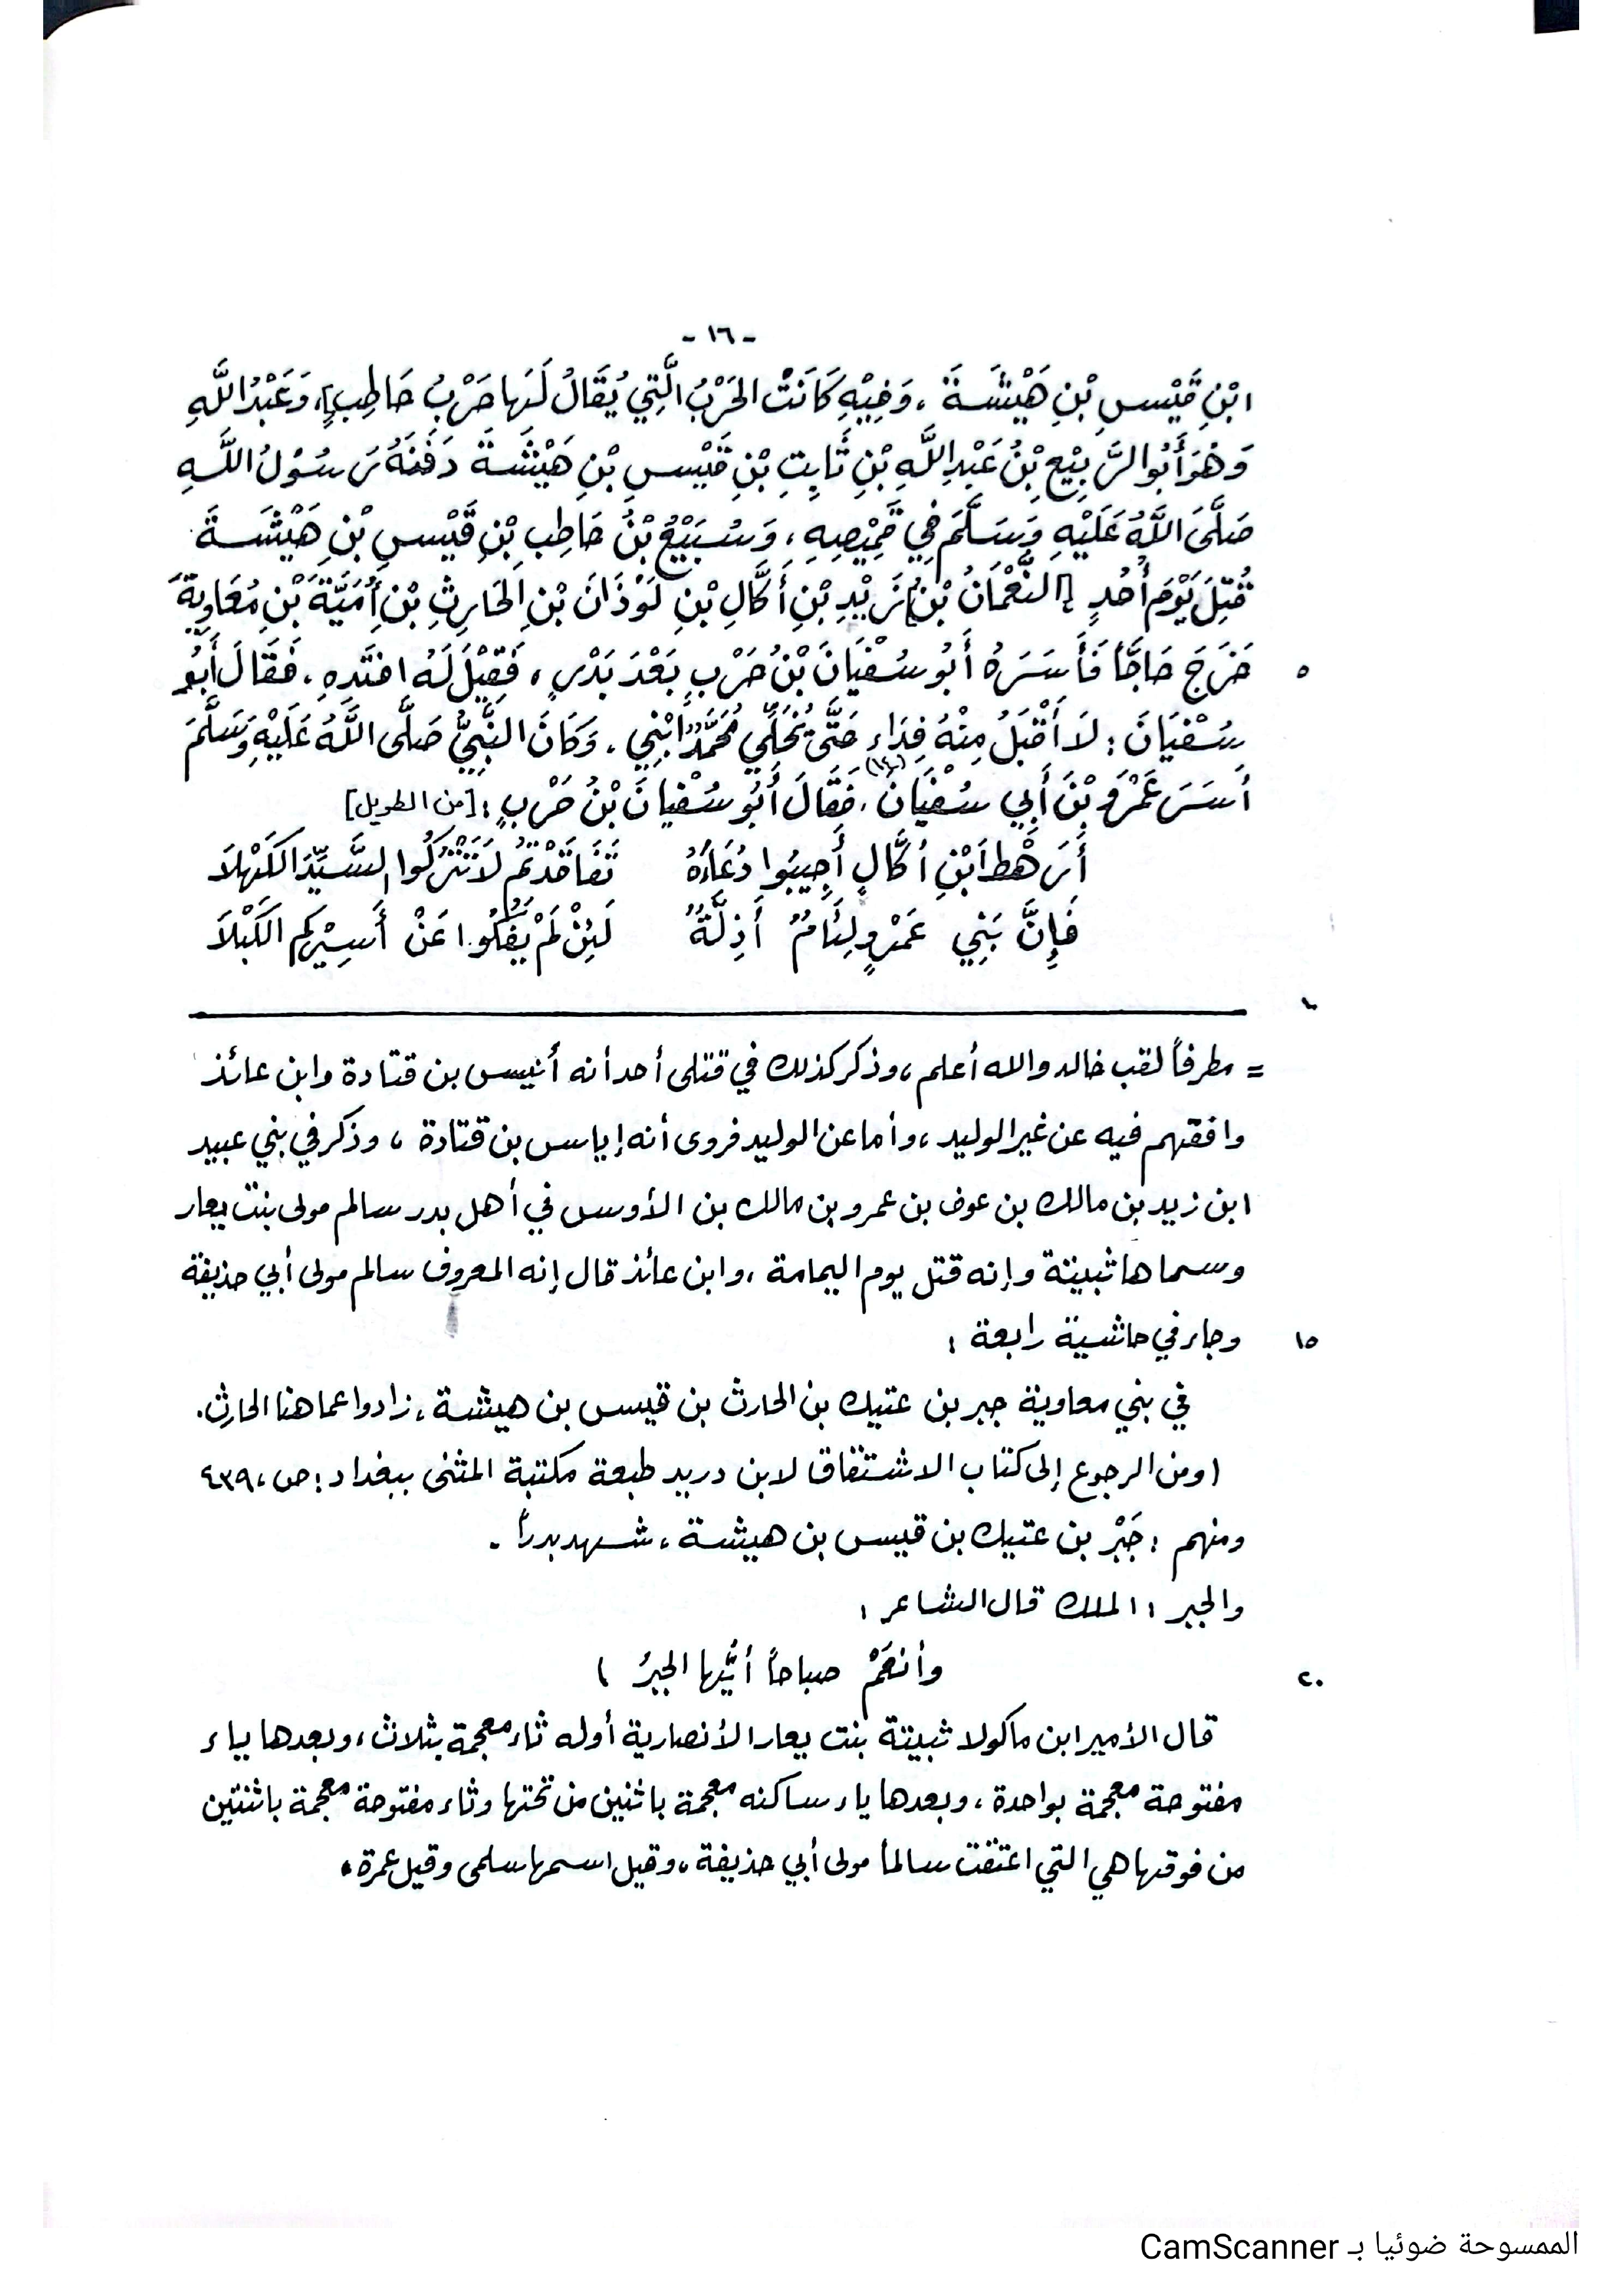 - ١٦ -
ابْنِ قَيْسِ بْنِ هَيْشَةَ ، وَفِيْهِ كَانَتْ الحَرْبُ الَّتِي يُقَالُ لَهَا حَرْبُ حَاطِبٍ]، وَعَبْدُ اللَّهِ
وَهُوَ أَبُو الرَّبِيْعِ بْنُ عَبْدِ اللَّهِ بْنِ ثَابِتِ بْنِ قَيْسِ بْنِ هَيْشَةَ دَفَنَهُ رَسُوْلُ اللَّهِ
صَلَّى اللَّهُ عَلَيْهِ وَسَلَّمَ فِي قَمِيْصِهِ ، وَسُبَيْعُ بْنُ حَاطِبِ بْنِ قَيْسِ بْنِ هَيْشَةَ
قُتِلَ يَوْمَ أُحُدٍ [النُّعْمَانُ بْنُ] زَيْدِ بْنِ أَكَّالِ بْنِ لَوْذَانَ بْنِ الحَارِثِ بْنِ أُمَيَّةَ بْنِ مُعَاوِيَةَ
٥ خَرَجَ حَاجَّاً فَأَسَرَهُ أَبُو سُفْيَانَ بْنُ حَرْبٍ بَعْدَ بَدْرٍ ، فَقِيْلَ لَهُ افتَدِهِ . فَقَالَ أَبُو
سُفْيَانَ : لاَ أَقْبَلُ مِنْهُ فِدَاءِ حَتَّى يُخَلِّي مُحَمَّدٌ ابْنِي . وَكَانَ النَّبِيُّ صَلَّى اللَّهُ عَلَيْهِ وَسَلَّمَ
أَسَرَ عَمْرَو بْنَ أَبِي سُفْيَانَ (١٤)، فَقَالَ أَبُو سُفْيانَ بْنُ حَرْبٍ : [من الطويل]
أَرَهْطَ ابْنِ أكَّالٍ أَجِيبُوا دُعَاءَهُ تَفَاقَدْتُمُ لاَ تَتْرُكُوا السَّيِّدَ الكَهْلاَ
فَإِنَّ بَنِي عَمْرٍو لِئَامٌ أَذِلَّةٌ لَئِنْ لَمْ يَفُكُّوا عَنْ أَسِيْرِكم الكَبْلاَ
١٠
= مطرفاً لقب خالد والله أعلم ، وذكر كذلك في قتلى أحد أنه أنيس بن قتادة وابن عائذ
وافقهم فيه عن غير الوليد ، وأما عن الوليد فروى أنه إياس بن قتادة ، وذكر في بني عبيد
ابن زيد بن مالك بن عوف بن عمرو بن مالك بن الأوس في أهل بدر سالم مولى بنت يعار
وسماها ثبيتة وإنه قتل يوم اليمامة ، وابن عائذ قال إنه المعروف سالم مولى أبي حذيفة
١٥ وجاء في حاشية رابعة :
في بني معاوية جبر بن عتيك بن الحارث بن قيس بن هيشة ، زادوا عما هنا الحارث.
(ومن الرجوع إلى كتاب الاشتقاق لابن دريد طبعة مكتبة المثنى ببغداد : ص ، ٤٣٩
ومنهم : جَبْر بن عتيك بن قيس بن هيشة ، شهد بدراً .
والجبر : الملك قال الشاعر :
٢٠ وأنعَمْ صباحاً أيُّها الجبرُ )
قال الأمير ابن ماكولا ثبيتة بنت يعار الأنصارية أوله ثاء معجمة بثلاث ، وبعدها باء
مفتوحة معجمة بواحدة ، وبعدها ياء ساكنه معجمة باثنين من تحتها وتاء مفتوحة معجمة باثنتين
من فوقها هي التي اعتقت سالماً مولى أبي حذيفة ، وقيل اسمها سلمى وقيل عمرة .
الممسوحة ضوئيا بـ CamScanner